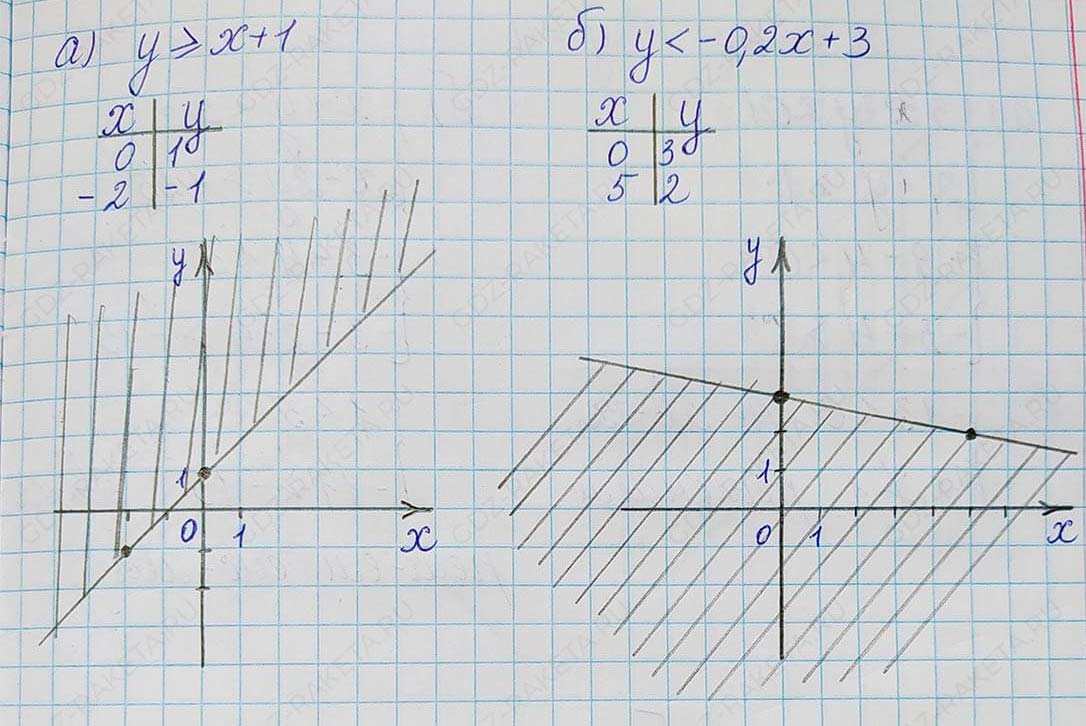 а) y ⩾ x+1
x | y
0 | 1
-2 | -1
y
1
0 1
x
б) y < -0,2x+3
x | y
0 | 3
5 | 2
y
1
0 1
x
GDZ-RAKETA.RU